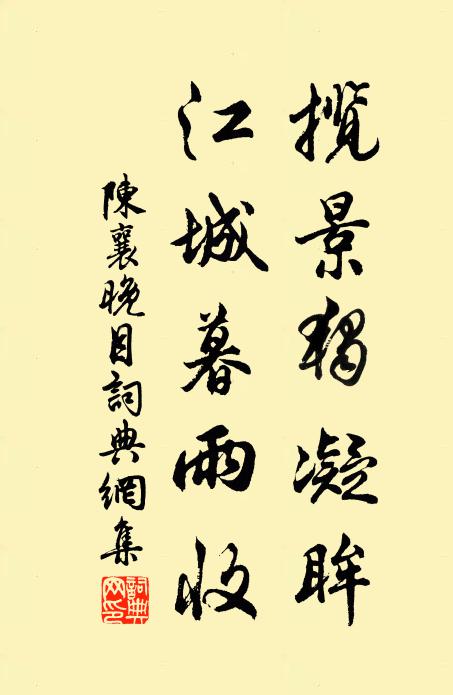 揽景獨凝眸
江城暮雨收
陳襄晚目詞典網集
詞典網印